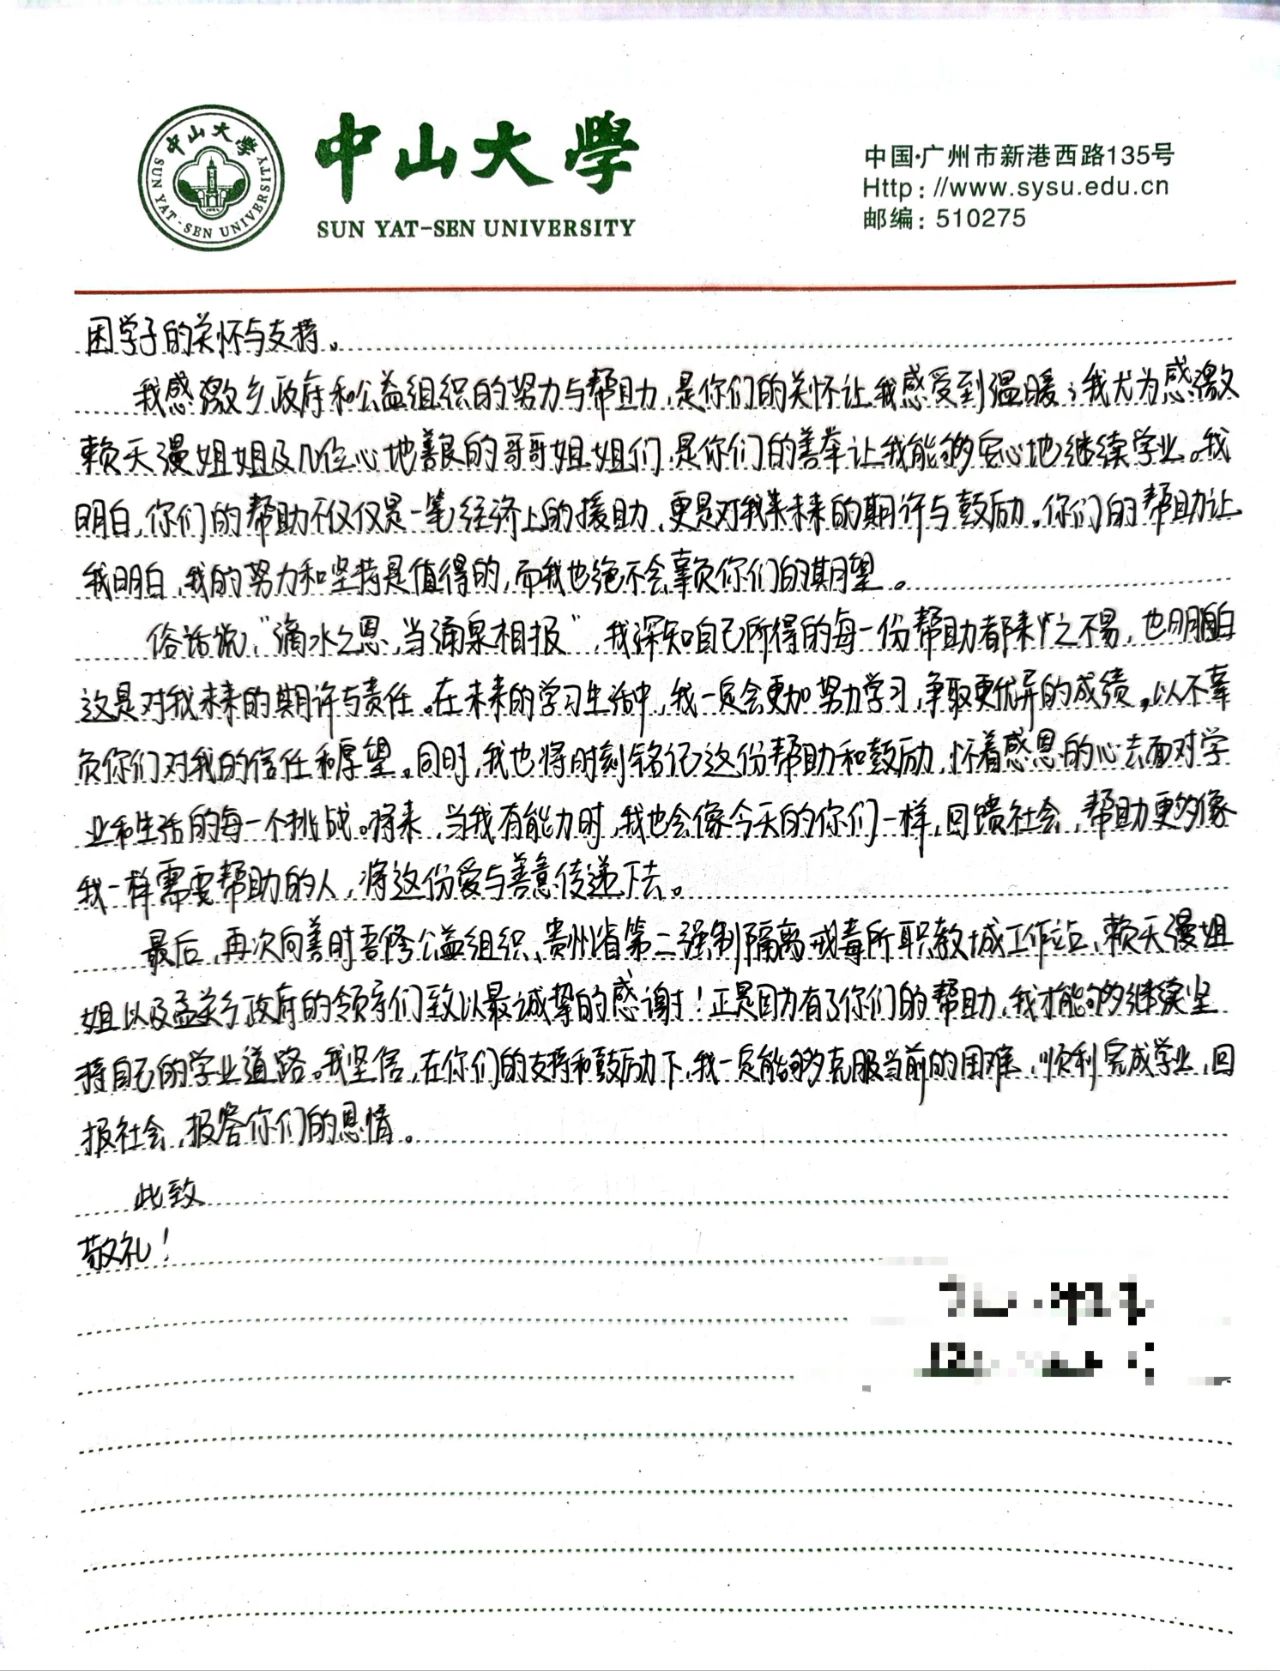 中山大學
SUN YAT-SEN UNIVERSITY
中山大學
SUN YAT-SEN UNIVERSITY
中国·广州市新港西路135号
Http: //www.sysu.edu.cn
邮编: 510275
困学子的关怀与支持。
我感激乡政府和公益组织的努力与帮助,是你们的关怀让我感受到温暖;我尤为感激
赖天漫姐姐及几位心地善良的哥哥姐姐们,是你们的善举让我能够安心地继续学业。我
明白,你们的帮助不仅仅是一笔经济上的援助,更是对我未来的期许与鼓励。你们的帮助让
我明白,我的努力和坚持是值得的,而我也绝不会辜负你们的期望。
俗话说,“滴水之恩,当涌泉相报”,我深知自己所得的每一份帮助都来之不易,也明白
这是对我未来的期许与责任。在未来的学习生活中,我一定会更加努力学习,争取更优异的成绩,以不辜
负你们对我的信任和厚望。同时,我也将时刻铭记这份帮助和鼓励,怀着感恩的心去面对学
业和生活的每一个挑战。将来,当我有能力时,我也会像今天的你们一样,回馈社会,帮助更多像
我一样需要帮助的人,将这份爱与善意传递下去。
最后,再次向善时吾修公益组织、贵州省第二强制隔离戒毒所职教城工作站、赖天漫姐
姐以及孟关乡政府的领导们致以最诚挚的感谢!正是因为有了你们的帮助,我才能够继续坚
持自己的学业道路。我坚信,在你们的支持和鼓励下,我一定能够克服当前的困难,顺利完成学业,回
报社会,报答你们的恩情。
此致
敬礼!